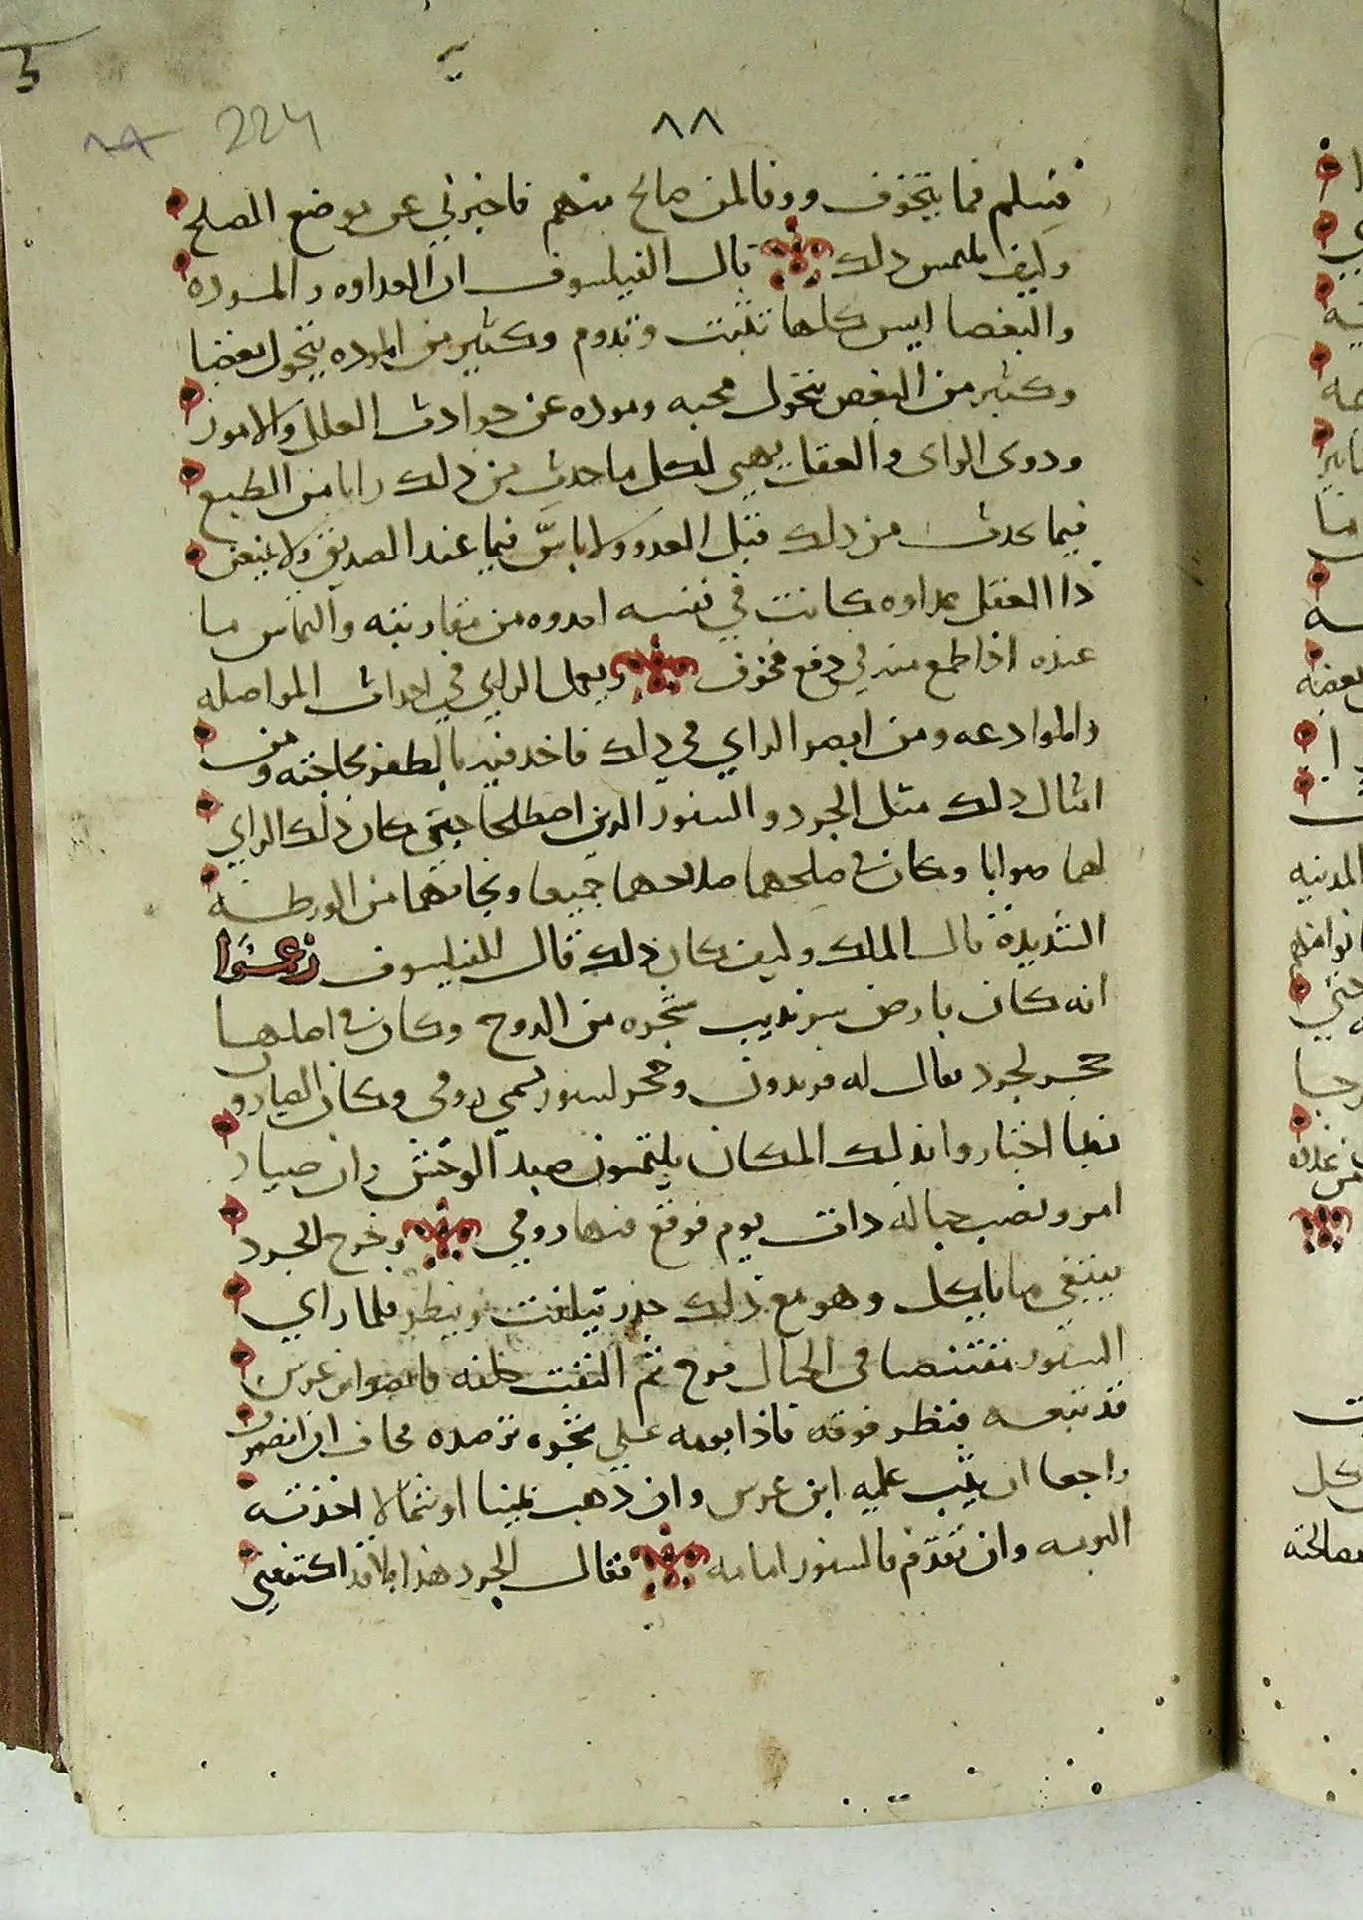 ٨٨
224
فيسلم مما يتخوف ووفا لمن صالح منهم فاخبرني عن موضع الصلح
وكيف يلتمس دلك قال الفيلسوف ان العداوه والموده
والبغضا ليس كلها تثبت وتدوم وكثير من الموده يتحول بغضا
وكثير من البغض يتحول محبه وموده عن حوادث العلل والامور
ودوى الراى والعقل يهيى لكل ما حدث من دلك رايا من الطبع
فيما يحدث من دلك قبل العدو ولاباس فيما عند الصديق ولا يمنعن
ذا العقل عداوه كانت في نفسه لعدوه من مقاربته والتماس ما
عنده اذا طمع منه في دفع مخوف ويعمل الراي في احداث المواصله
والموادعه ومن ابصر الراي في دلك فاخد فيه بالظفر بحاجته ومن
امثال دلك مثل الجرد والسنور الدين اصطلحا حيتي كان ذلك الراي
لهما صوابا وكان في صلحهما صلاحهما جميعا ونجاتهما من الورطه
الشديدة قال الملك وكيف كان ذلك قال الفيلسوف زعموا
انه كان بارض سرنديب شجره من الدوح وكان في اصلها
جحر لجرد يقال له فريدون وجحر لسنور يسمي رومى وكان الصيادو
نطبا اختاروا بذلك المكان يلتمسون صيد الوحش وان صياد
امر ونصب حباله دات يوم فوقع فيها رومي وخرج الجرد
يبتغي ما ياكل وهو مع ذلك حذر يتلفت وينظر فلما راي
السنور مقتنصا فى الحبال فرح ثم التفت خلفه فابصر ابن عرس
قد تبعه فنظر فوقه فاذا بومه علي شجره ترصده فخاف ان انصرف
راجعا ان يثب عليه ابن عرس وان ذهب يمينا او شمالا اخذته
البومه وان تقدم فالسنور امامه فقال الجرد هذا بلا قد اكتنفني